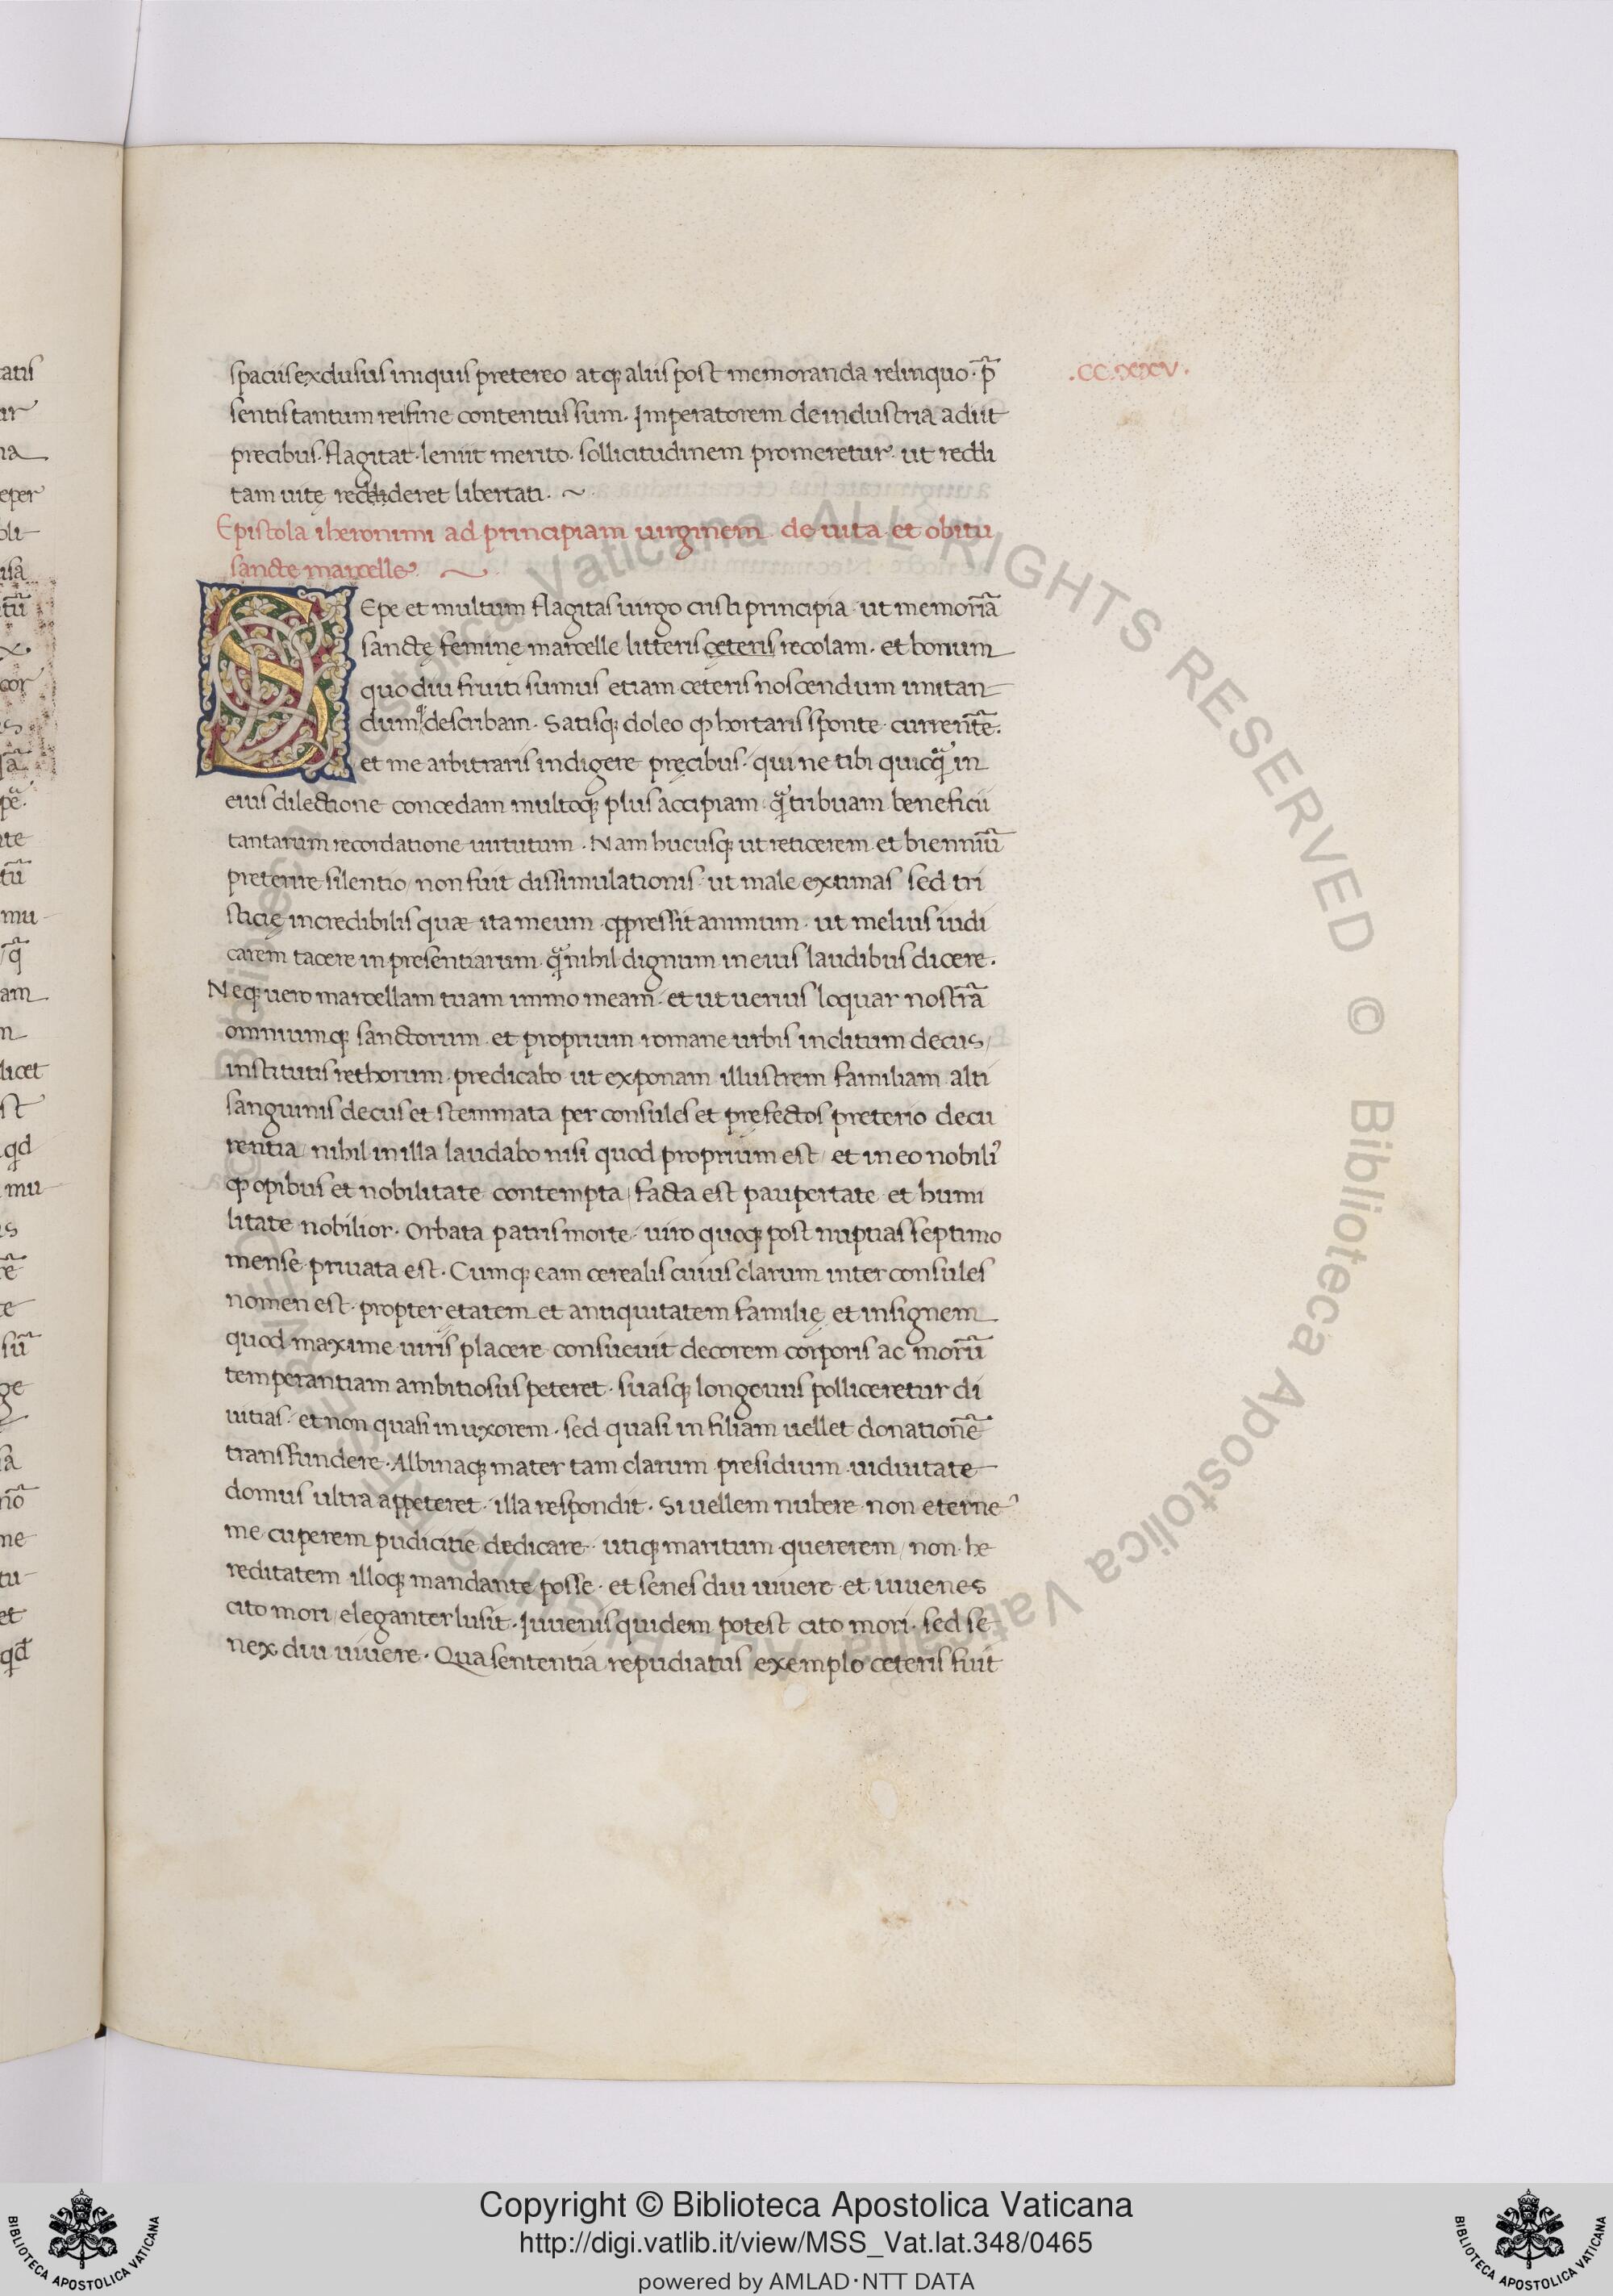 spaciis exclusus iniquis pretereo atq; aliis post memoranda relinquo · p̄
.CC.xxxv.
sentis tantum rei fine contentus sum. Imperatorem de industria adiit
precibus · flagitat · leniit merito · sollicitudinem promeretur · ut reddi
tam uitę reddideret libertati · ~
Epistola iheronimi ad principiam uirginem de uita et obitu
sancte marcelle · ~
SEpe et multum flagitas uirgo cristi principia · ut memoriā
sanctę feminę marcelle litteris ceteris recolam · et bonum
quo diu fruiti sumus etiam ceteris noscendum imitan
dumq; describam · Satisq; doleo ꝙ hortaris sponte currentē ·
et me arbitraris indigere pręcibus · qui ne tibi quicq̄ in
eius dilectione concedam multoq; plus accipiam q̄ tribuam beneficii
tantarum recordatione uirtutum · Nam hucusq; ut reticerem et bienniū
preterire silentio / non fuit dissimulationis ut male extimas sed tri
sticię incredibilis quæ ita meum oppressit animum · ut melius iudi
carem tacere in presentiarum q̄ nihil dignum in eius laudibus dicere ·
Neq; uero marcellam tuam immo meam · et ut uerius loquar nostrā
omniumq; sanctorum et proprium romane urbis inclitum decus /
institutis rethorum predicabo ut exponam illustrem familiam alti
sanguinis decus et stemmata per consules et pręfectos preterio decu
rentia / nihil in illa laudabo nisi quod proprium est / et in eo nobili'
ꝙ opibus et nobilitate contempta / facta est paupertate et humi
litate nobilior · Orbata patris morte · uiro quoq; post nuptias septimo
mense priuata est · Cumq; eam cerealis cuius clarum inter consules
nomen est · propter etatem et antiquitatem familię et insignem
quod maxime uiris placere consueuit decorem corporis ac morū
temperantiam ambitiosus peteret · suasq; longeuus polliceretur di
uitias · et non quasi in uxorem · sed quasi in filiam uellet donationē
transfundere · Albinaq; mater tam clarum presidium uiduitate
domus ultra appeteret · illa respondit · Si uellem nubere non eterne
me cuperem pudicitie dedicare · utiq; maritum quererem / non he
reditatem illoq; mandante posse · et senes diu uiuere et iuuenes
cito mori / eleganter lusit · Iuuenis quidem potest cito mori · sed se
nex diu uiuere · Qua sententia repudiatus exemplo ceteris fuit
Copyright © Biblioteca Apostolica Vaticana
http://digi.vatlib.it/view/MSS_Vat.lat.348/0465
powered by AMLAD·NTT DATA
BIBLIOTECA APOSTOLICA VATICANA
BIBLIOTECA APOSTOLICA VATICANA
© Biblioteca Apostolica Vaticana ALL RIGHTS RESERVED © Biblioteca Apostolica Vaticana ALL RIGHTS RESERVED